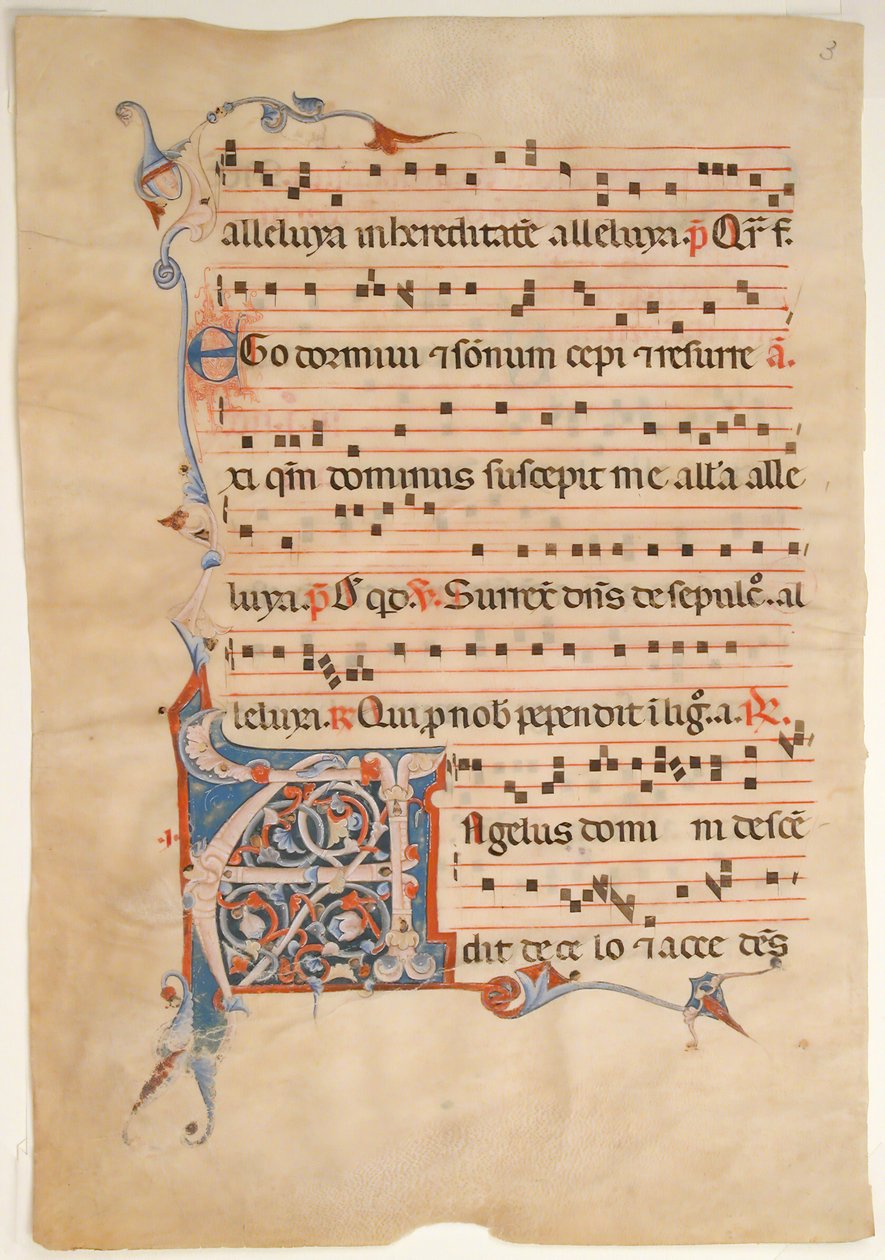 3
alleluya in hereditatē alleluya. p̄ Qr̄ f.
EGo dormiui ⁊ sōnum cepi ⁊ resurre ā.
xi qm̄ dominus suscepit me all'a alle
luya. p̄ qd. v. Surrex̄ dn̄s de sepulc̊. al
leluya. R Qui p nob pependit ī lig̊. a. R.
Angelus domi ni descē
dit de ce lo ⁊ acce dēs